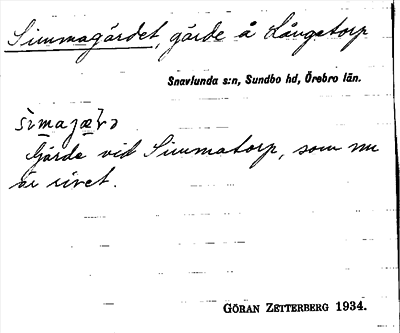 Simmagärdet, gärde å Långstorp
Snavlunda s:n, Sundbo hd, Örebro län.
Gärde vid Simmatorp, som nu
är rivet.
GÖRAN ZETTERBERG 1934.